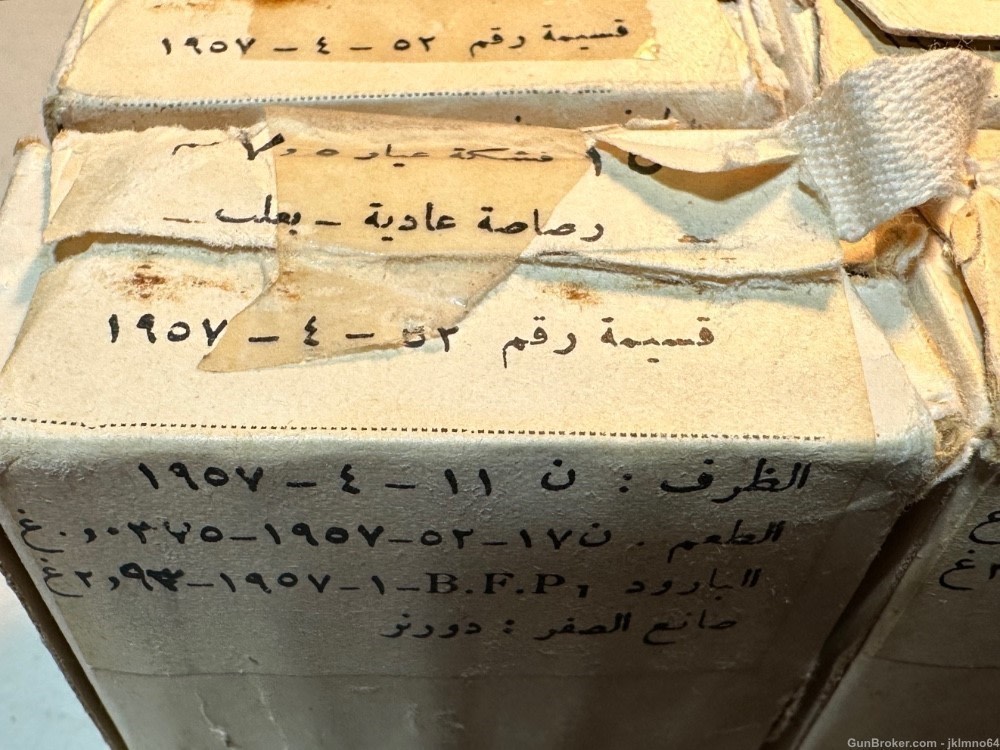 قسيمة رقم ٥٢ – ٤ – ١٩٥٧
١٥ فشكة عيار ٧٫٥ مم
رصاصة عادية – بعلب –
قسيمة رقم ٥٢ – ٤ – ١٩٥٧
الظرف : ن ١١ – ٤ – ١٩٥٧
الطعم . ن١٧–٥٢–١٩٥٧–٠٫٠٣٧٥غ
البارود B.F.P₁–١–١٩٥٧–٢٫٩٣غ
صانع الصفر : دورنر
غ
غ
GunBroker.com - jklmno64